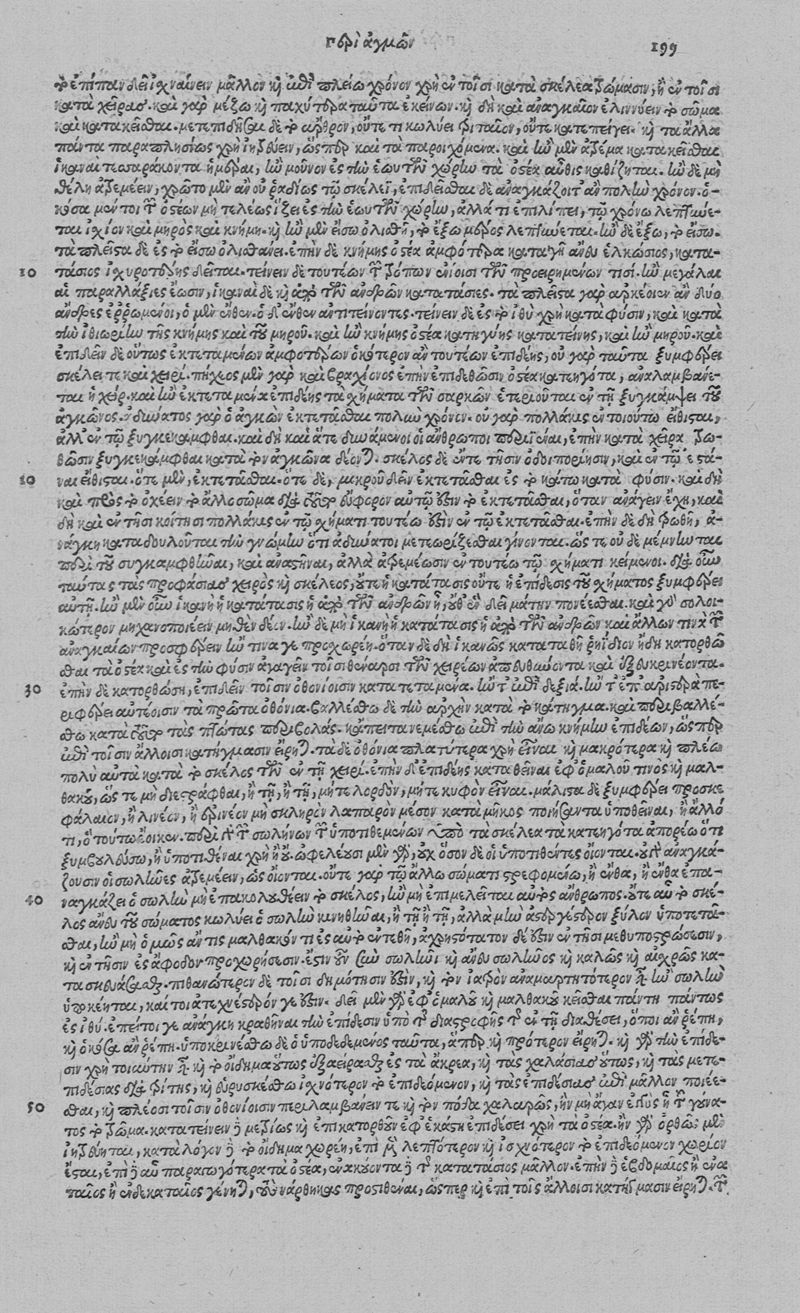 περὶ ἀγμῶν 199
τὸ ἐπίπαν δεῖ ἰσχναίνειν μᾶλλον καὶ ἐπὶ πλείω χρόνον χρὴ ἐν τοῖσι κατὰ σκέλεα τρώμασιν, ἢ ἐν τοῖσι
κατὰ χεῖρας. καὶ γὰρ μέζω καὶ παχύτερα ταῦτα ἐκείνων. καὶ δὴ καὶ ἀναγκαῖον ἐλιννύειν τὸ σῶμα
καὶ κατακεῖσθαι. μετεπιδῆσαι δὲ τὸ ἄρθρον, οὔτε τι κωλύει τριταῖον, οὔτε κατεπείγει. καὶ τὰ ἄλλα
πάντα παραπλησίως χρὴ ἰητρεύειν, ὥσπερ καὶ τὰ παροιχόμενα. καὶ ἢν μὲν ἀτρέμα κατακεῖσθαι
ἱκαναὶ τεσσαράκοντα ἡμέραι, ἢν μοῦνον ἐς τὴν ἑωυτῶν χώρην τὰ ὀστέα αὖθις καθίζηται. ἢν δὲ μὴ
θέλῃ ἀτρεμέειν, χρῶτο μὲν ἂν οὐ ῥαδίως τῷ σκέλεϊ, ἐπιδεῖσθαι δὲ ἀναγκάζοιτ᾽ ἂν πολὺν χρόνον. ὁ-
κόσα μέντοι τῶν ὀστέων μὴ τελέως ἵζει ἐς τὴν ἑωυτῶν χώρην, ἀλλά τι ἐπιλίπει, τῷ χρόνῳ λεπτύνε-
ται ἰσχίον καὶ μηρὸς καὶ κνήμη. καὶ ἢν μὲν εἴσω ὀλισθῇ, τὸ ἔξω μέρος λεπτύνεται. ἢν δὲ ἔξω, τὸ εἴσω.
τὰ πλεῖστα δὲ ἐς τὸ εἴσω ὀλισθάνει. ἐπὴν δὲ κνήμης ὀστέα ἀμφότερα καταγῇ ἄνευ ἑλκώσιος, κατα-
10 τάσιος ἰσχυροτέρης δεῖται. τείνειν δὲ τουτέων τῶν τρόπων ἐνίοισι τῶν προειρημένων τισὶ. ἢν μεγάλαι
αἱ παραλλάξιες ἔωσιν, ἱκαναὶ δὲ καὶ ἀπὸ τῶν ἀνδρῶν κατατάσιες. τὰ πλεῖστα γὰρ ἀρκέοιεν ἂν δύο
ἄνδρες ἐρρωμένοι, ὁ μὲν ἔνθεν. ὁ δ᾽ ἔνθεν ἀντιτείνοντες. τείνειν δὲ ἐς τὸ ἰθὺ χρὴ κατὰ φύσιν, καὶ κατὰ
τὴν ἰθυωρίην τῆς κνήμης καὶ τοῦ μηροῦ. καὶ ἢν κνήμης ὀστέα κατηγυίης κατατείνῃς, καὶ ἢν μηροῦ. καὶ
ἐπιδεῖν δὲ οὕτως ἐκτεταμένων ἀμφοτέρων ὁκότερον ἂν τουτέων ἐπιδέῃς, οὐ γὰρ ταῦτα ξυμφέρει
σκέλει τε καὶ χειρί. πήχιος μὲν γὰρ καὶ βραχίονος ἐπὴν ἐπιδεθῶσιν ὀστέα κατηγότα, ἀναλαμβάνε-
ται ἡ χεὶρ. καὶ ἢν ἐκτεταμένα ἐπιδέῃς τὰ σχήματα τῶν σαρκῶν ἑτεριοῦται ἐν τῇ ξυγκάμψει τοῦ
ἀγκῶνος. ἀδύνατος γὰρ ὁ ἀγκὼν ἐκτετάσθαι πολὺν χρόνον. οὐ γὰρ πολλάκις ἐν τοιούτῳ εἴθισται,
ἀλλ᾽ ἐν τῷ ξυγκεκάμφθαι. καὶ δὴ καὶ ἅτε δυνάμενοι οἱ ἄνθρωποι περιιέναι, ἐπὴν κατὰ χεῖρα τρω-
θῶσιν ξυγκεκάμφθαι κατὰ τὸν ἀγκῶνα δέονται. σκέλος δὲ ἔν τε τῇσιν ὁδοιπορίῃσιν, καὶ ἐν τῷ ἑστά-
20 ναι εἴθισται. ὁτὲ μὲν, ἐκτετάσθαι. ὁτὲ δὲ, μικροῦ δεῖν ἐκτετάσθαι ἐς τὸ κάτω κατὰ φύσιν. καὶ δὴ
καὶ πρὸς τὸ ὀχέειν τὸ ἄλλο σῶμα διὰ τοῦτο εὔφορον αὐτῷ ἐστὶν τὸ ἐκτετάσθαι, ὅταν ἀνάγκην ἔχῃ, καὶ
δὴ καὶ ἐν τῇσι κοίτῃσι πολλάκις ἐν τῷ σχήματι τουτέῳ ἐστὶν ἐν τῷ ἐκτετάσθαι. ἐπὴν δὲ δὴ τρωθῇ, ἀ-
νάγκη καταδουλοῦται τὴν γνώμην ὅτι ἀδύνατοι μετεωρίζεσθαι γίνονται. ὥστε οὐδὲ μέμνηνται
περὶ τοῦ συγκαμφθῆναι, καὶ ἀναστῆναι, ἀλλὰ ἀτρεμέωσιν ἐν τουτέῳ τῷ σχήματι κείμενοι. διὰ οὖν
ταύτας τὰς προφάσιας χειρὸς καὶ σκέλεος, οὔτε ἡ κατάτασις οὔτε ἡ ἐπίδεσις τοῦ σχήματος ξυμφέρει
αὐτή. ἢν μὲν οὖν ἱκανὴ ἡ κατάτασις ἡ ἀπὸ τῶν ἀνδρῶν ᾖ, οὐδὲν δεῖ μάτην πονέεσθαι. καὶ γὰρ σολοι-
κώτερον μηχανοποιέειν μηδὲν δέον. ἢν δὲ μὴ ἱκανὴ ἡ κατάτασις ἡ ἀπὸ τῶν ἀνδρῶν καὶ ἄλλων τινὰ τῶν
ἀναγκαίων προσφέρειν ἤν τινα γε προχωρέῃ. ὅταν δὲ δὴ ἱκανῶς καταταθῇ ῥηΐδιον ἤδη κατορθώσ-
θαι τὰ ὀστέα καὶ ἐς τὴν φύσιν ἀγαγεῖν τοῖσι θέναρσι τῶν χειρέων ἀπευθύνοντα καὶ ἐξευκρινέοντα.
30 ἐπὴν δὲ κατορθώσῃ, ἐπιδεῖν τοῖσιν ὀθονίοισιν κατατεταμένα. ἤν τ᾽ ἐπὶ δεξιά. ἤν τ᾽ ἐπ᾽ ἀριστερὰ πε-
ριφέρει αὐτέοισιν τὰ πρῶτα ὀθόνια. βαλλέσθω δὲ τὴν ἀρχὴν κατὰ τὸ κάτηγμα. καὶ περιβαλλέ-
σθω κατὰ τοῦτο τὰς πρώτας περιβολάς. κἄπειτα νεμέσθω ἐπὶ τὴν ἄνω κνήμην ἐπιδέων, ὥσπερ
ἐπὶ τοῖσιν ἄλλοισι κατήγμασιν εἴρηται. τὰ δὲ ὀθόνια πλατύτερα χρὴ εἶναι καὶ μακρότερα καὶ πλέω
πολὺ αὐτὰ κατὰ τὸ σκέλος τῶν ἐν τῇ χειρί. ἐπὴν δὲ ἐπιδέῃς καταθεῖναι ἐφ᾽ ὁμαλοῦ τινὸς καὶ μαλ-
θακοῦ, ὥστε μὴ διεστράφθαι, ἢ τῇ, ἢ τῇ, μήτε λορδὸν, μήτε κυφὸν εἶναι. μάλιστα δὲ ξυμφέρει προσκε-
φάλαιον, ἢ λινέον, ἢ ἐρινέον μὴ σκληρὸν λαπαρὸν μέσον κατὰ μῆκος ποιήσαντα ὑποθεῖναι, ἢ ἄλλό
τι, ὃ τούτῳ ἔοικεν. περὶ γὰρ τῶν σωλήνων τῶν ὑποτιθεμένων ὑπὸ τὰ σκέλεα τὰ κατηγότα ἀπορέω ὅτι
ξυμβουλεύσω, ἢ ὑποτιθέναι χρὴ ἢ οὔ. ὠφελέουσι μὲν γὰρ, οὐχ ὅσον δὲ οἱ ὑποτιθέντες οἴονται. οὐ γὰρ ἀναγκά-
ζουσιν οἱ σωλῆνες ἀτρεμέειν, ὡς οἴονται. οὔτε γὰρ τῷ ἄλλῳ σώματι στρεφομένῳ, ἢ ἔνθα, ἢ ἔνθα ἐπα-
40 ναγκάζει ὁ σωλὴν μὴ ἐπακολουθέειν τὸ σκέλος, ἢν μὴ ἐπιμελεῖται αὐτὸς ὤνθρωπος. οὔτε αὖ τὸ σκέ-
λος ἄνευ τοῦ σώματος κωλύει ὁ σωλὴν κινηθῆναι, ἢ τῇ ἢ τῇ, ἀλλὰ μὴν ἀτερπέστερον ξύλον ὑποτετά-
σθαι, ἢν μὴ ὁμῶς ἄν τις μαλθακόν τι ἐς αὐτὸ ἐντεθῇ, ἀχρηστότατον δέ ἐστιν ἐν τῇσι μεθυποστρώσεσιν,
καὶ ἐν τῇσιν ἐς ἄφοδον προχωρήσεσιν. ἔστιν οὖν σὺν σωλῆνι καὶ ἄνευ σωλῆνος καὶ καλῶς καὶ αἰσχρῶς κα-
τασκευάσασθαι. πιθανώτερον δὲ τοῖσι δημότῃσιν ἐστὶν, καὶ τὸν ἰητρὸν ἀναμαρτητότερον εἶναι ἢν σωλὴν
ὑποκέηται, καίτοι ἀτεχνέστερόν γε ἐστίν. δεῖ μὲν γὰρ ἐφ᾽ ὁμαλοῦ καὶ μαλθακοῦ κεῖσθαι πάντῃ πάντως
ἐς ἰθύ. ἐπεί τοί γε ἀνάγκη κρατηθῆναι τὴν ἐπίδεσιν ὑπὸ τῆς διαστροφῆς τῆς ἐν τῇ διαθέσει, ὅποι ἂν ῥέπῃ,
καὶ ὁκόσα ἂν ῥέπῃ. ὑποκρινέσθω δὲ ὁ ὑποδεδεμένος ταῦτα, ἅπερ καὶ πρότερον εἴρηται. καὶ γὰρ τὴν ἐπίδε-
σιν χρὴ τοιαύτην εἶναι καὶ τὸ οἴδημα οὕτως ἐξαείρασθαι ἐς τὰ ἄκρεα, καὶ τὰς χαλάσιας οὕτως, καὶ τὰς μετε-
πιδέσιας διὰ τρίτης, καὶ εὑρισκέσθω ἰσχνότερον τὸ ἐπιδεόμενον, καὶ τὰς ἐπιδέσιας ἐπὶ μᾶλλον ποιέε-
50 σθαι, καὶ πλέοσι τοῖσιν ὀθονίοισιν περιλαμβάνειν τε καὶ τὸν πόδα χαλαρῶς, ἢν μὴ ἄγαν ἐγγὺς ᾖ τοῦ γούνα-
τος τὸ τρῶμα. κατατείνειν δὲ μετρίως καὶ ἐπικατορθοῦν ἐφ᾽ ἑκάστῃ ἐπιδέσει χρὴ τὰ ὀστέα. ἢν γὰρ ὀρθῶς μὲν
ἰητρεύηται, κατὰ λόγον δὲ τὸ οἴδημα χωρέῃ, ἐπὶ μὲν λεπτότερον καὶ ἰσχνότερον τὸ ἐπιδεόμενον χωρίον
ἔσται, ἐπὶ δὲ αὖ παραγωγότερα τὰ ὀστέα, ἐνακούοντα δὲ τῆς κατατάσιος μᾶλλον. ἐπὴν δὲ ἑβδομαῖος ἢ ἐνα-
ταῖος ἢ ἑνδεκαταῖος γένηται, τοὺς νάρθηκας προστιθέναι, ὥσπερ καὶ ἐπὶ τοῖς ἄλλοισι κατήγμασιν εἴρηται. τῶν